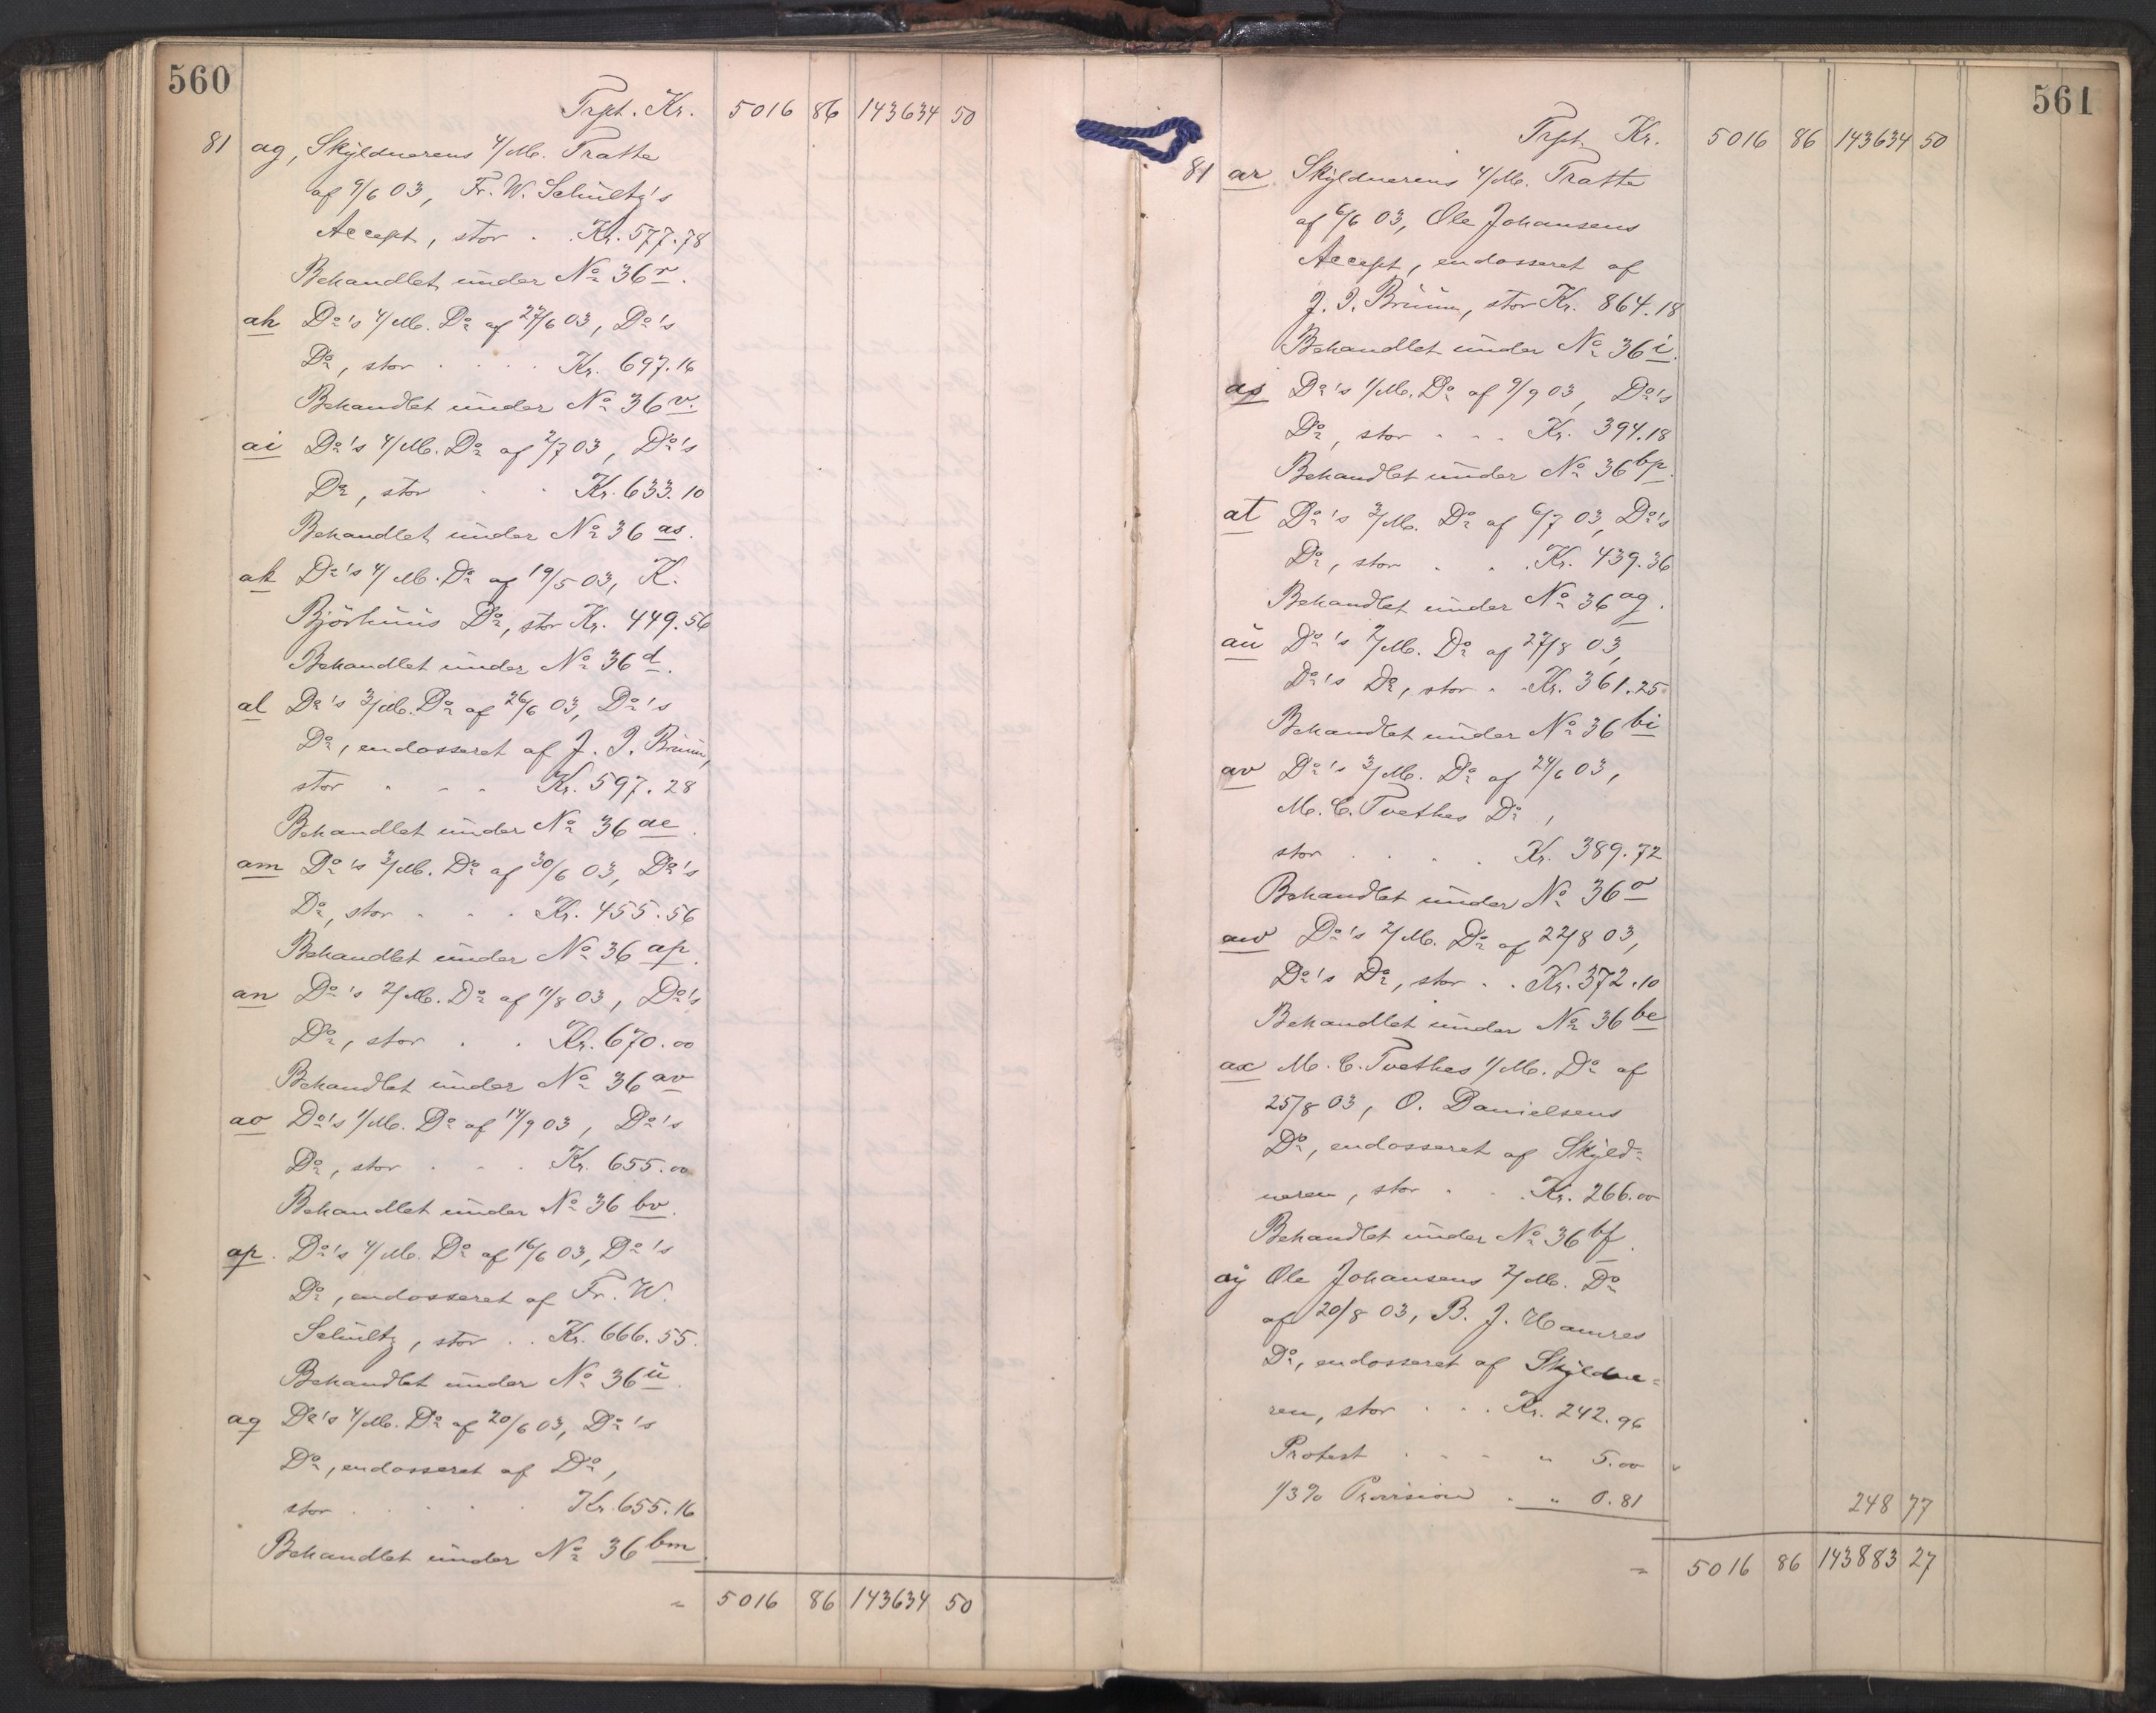 560
Trpt. Kr. 5016 86 143634 50
81 ag, Skyldnerens 4/M. Tratte
af 9/6 03, Fr. W. Schultz's
Accept, stor . Kr. 577.78
Behandlet under No 36 r.
ah Do's 4/M. Do af 27/6 03, Do's
Do, stor . . . . Kr. 697.16
Behandlet under No 36 v.
ai Do's 4/M. Do af 2/7 03, Do's
Do, stor . . Kr. 633.10
Behandlet under No 36 as.
ak Do's 4/M. Do af 19/5 03, K.
Bjørhuus Do, stor Kr. 449.56
Behandlet under No 36 d.
al Do's 3/M. Do af 26/6 03, Do's
Do, endosseret af J. J. Bruun,
stor . . . Kr. 597.28
Behandlet under No 36 ae.
am Do's 3/M. Do af 30/6 03, Do's
Do, stor . . . Kr. 455.56
Behandlet under No 36 ap.
an Do's 2/M. Do af 11/8 03, Do's
Do, stor . . Kr. 670.00
Behandlet under No 36 av
ao Do's 1/M. Do af 14/9 03, Do's
Do, stor . . . Kr. 655.00
Behandlet under No 36 bv.
ap. Do's 4/M. Do af 16/6 03, Do's
Do, endosseret af Fr. W.
Schultz, stor . . Kr. 666.55.
Behandlet under No 36 u.
aq Do's 4/M. Do af 20/6 03, Do's
Do, endosseret af Do,
stor . . . . . Kr. 655.16
Behandlet under No 36 bm.
" 5016 86 143634 50
561
Trpt. Kr. 5016 86 143634 50
81 ar Skyldnerens 4/M. Tratte
af 6/6 03, Ole Johansens
Accept, endosseret af
J. J. Bruun, stor Kr. 864.18
Behandlet under No 36 i.
as Do's 1/M. Do af 9/9 03, Do's
Do, stor . . . Kr. 394.18
Behandlet under No 36 bp.
at Do's 3/M. Do af 6/7 03, Do's
Do, stor . . . Kr. 439.36
Behandlet under No 36 ag.
au Do's 2/M. Do af 27/8 03,
Do's Do, stor . . Kr. 361.25
Behandlet under No 36 bi
av Do's 3/M. Do af 24/6 03,
M. C. Tvethes Do,
stor . . . . Kr. 389.72
Behandlet under No 36 o
aw Do's 2/M. Do af 22/8 03,
Do's Do, stor . . Kr. 372.10
Behandlet under No 36 be
ax M. C. Tvethes 1/M. Do af
25/8 03, O. Danielsens
Do, endosseret af Skyld=
neren, stor . . Kr. 266.00
Behandlet under No 36 bf.
ay Ole Johansens 2/M. Do
af 20/8 03, B. J. Hamres
Do, endosseret af Skyldne=
ren, stor . . . Kr. 242.96
Protest . . . . " 5.00
1/3% Provision . " 0.81 248 77
" 5016 86 143883 27